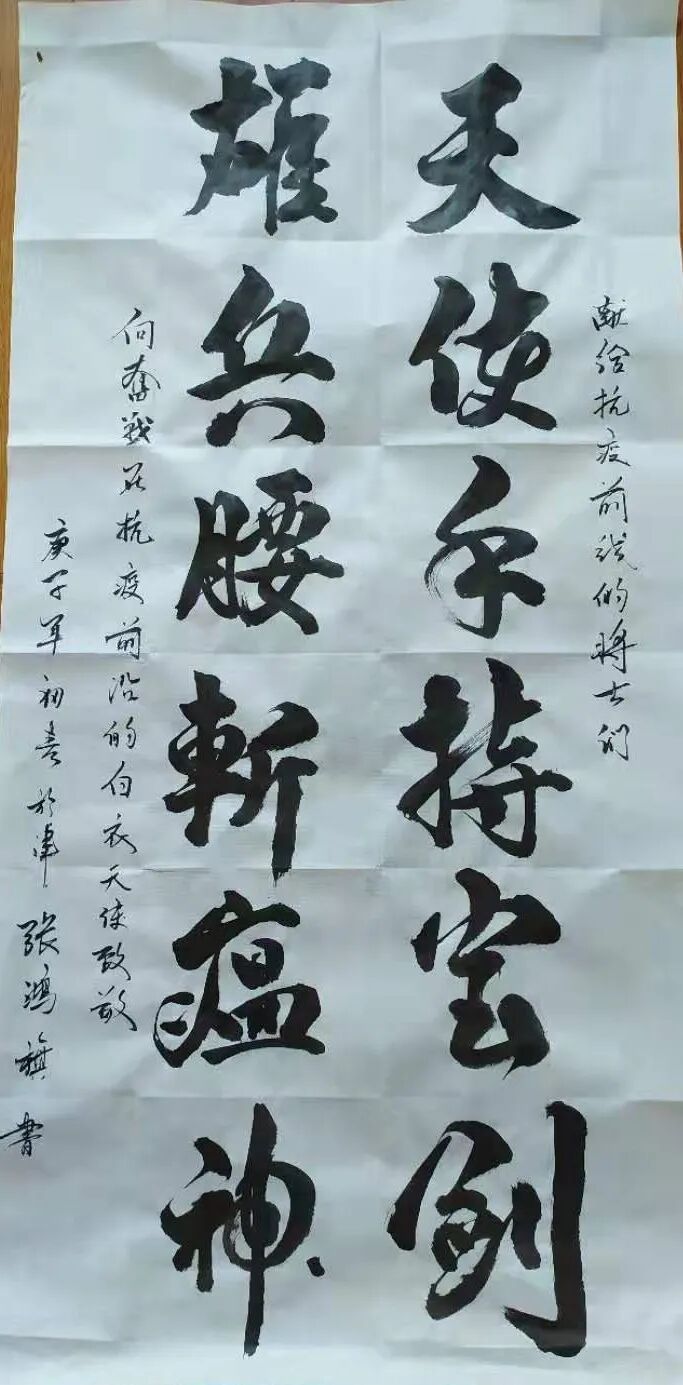 献给抗疫前线的将士们
天使手持宝剑
雄兵腰斬瘟神
向奋战在抗疫前沿的白衣天使致敬
庚子年初春於津 张鸿旗書